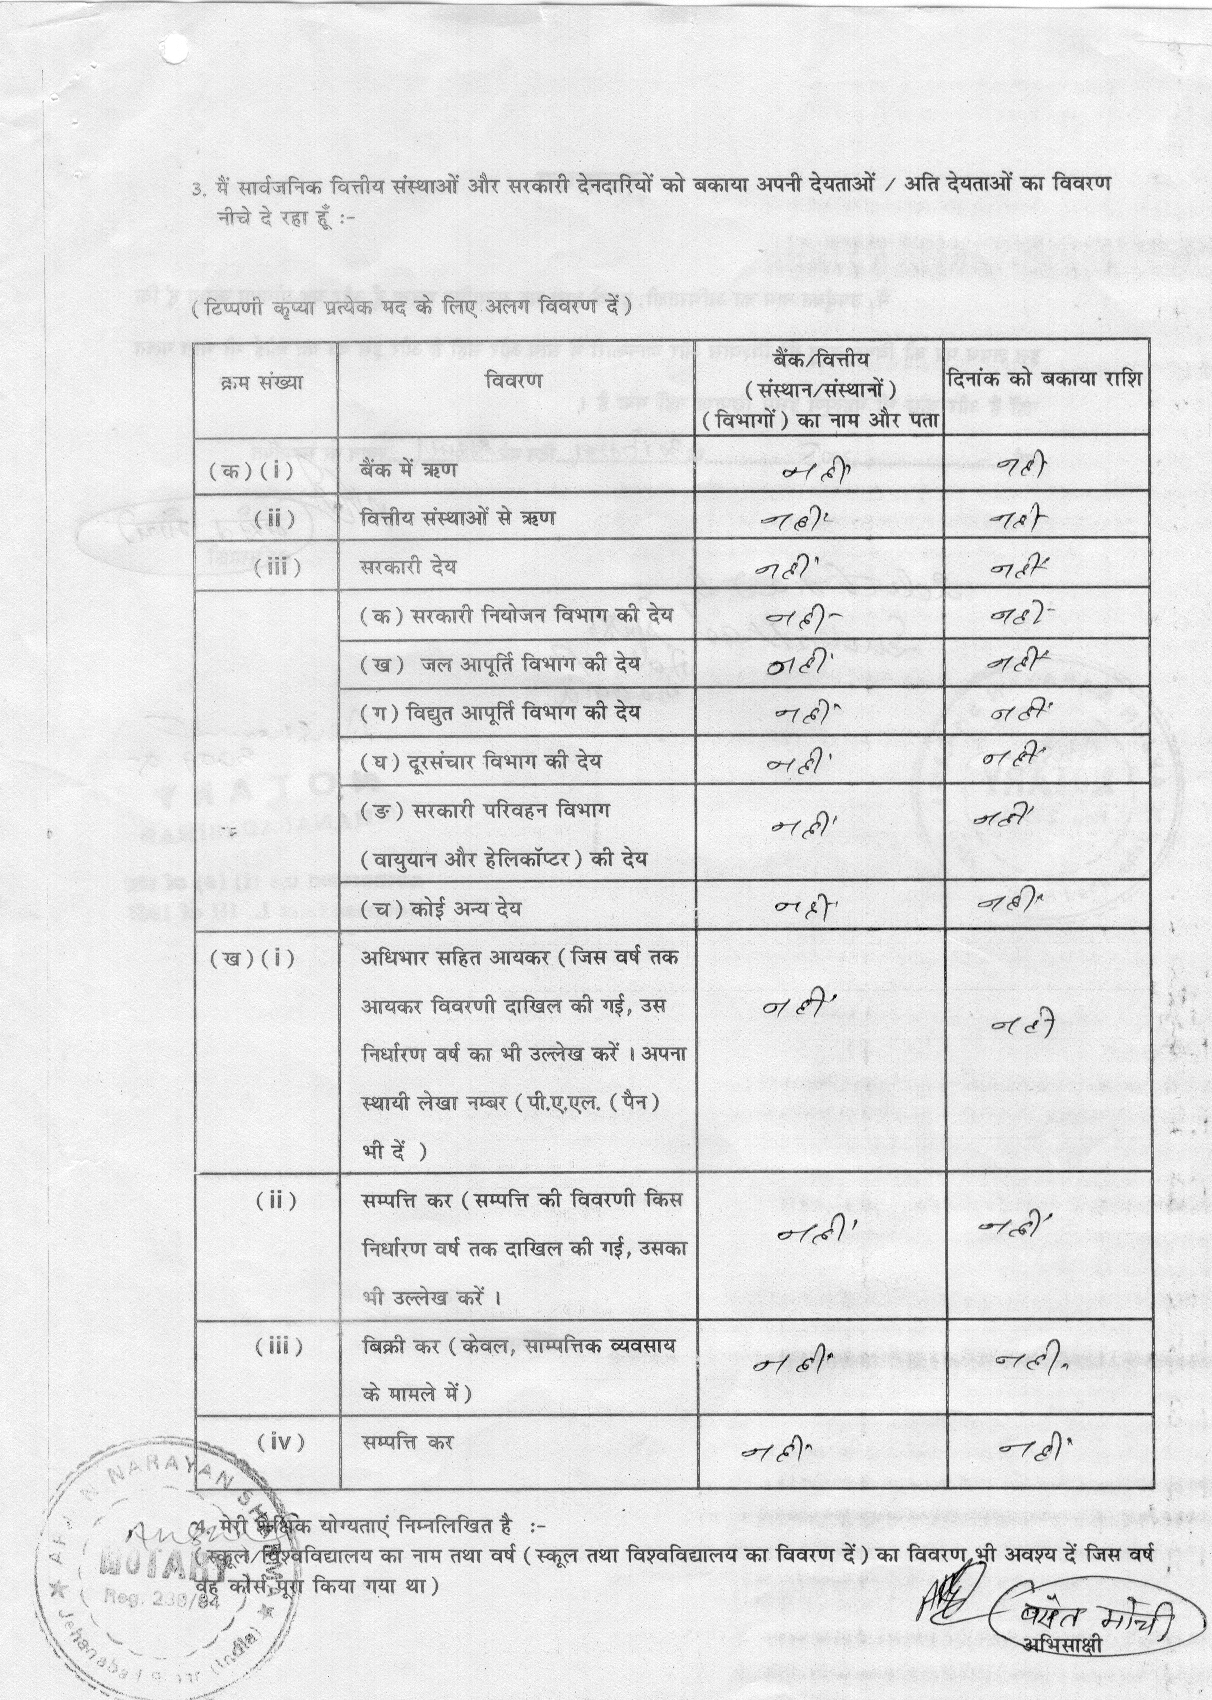 3. मैं सार्वजनिक वित्तीय संस्थाओं और सरकारी देनदारियों को बकाया अपनी देयताओं / अति देयताओं का विवरण
नीचे दे रहा हूँ :-
(टिप्पणी कृप्या प्रत्येक मद के लिए अलग विवरण दें)
क्रम संख्या विवरण बैंक/वित्तीय (संस्थान/संस्थानों) (विभागों) का नाम और पता दिनांक को बकाया राशि
(क)(i) बैंक में ऋण नहीं नही
(ii) वित्तीय संस्थाओं से ऋण नहीं नही
(iii) सरकारी देय नहीं नहीं
(क) सरकारी नियोजन विभाग की देय नही- नही-
(ख) जल आपूर्ति विभाग की देय नहीं नहीं
(ग) विद्युत आपूर्ति विभाग की देय नहीं नहीं
(घ) दूरसंचार विभाग की देय नहीं नहीं
(ङ) सरकारी परिवहन विभाग नहीं नहीं
(वायुयान और हेलिकॉप्टर) की देय
(च) कोई अन्य देय नहीं नहीं
(ख)(i) अधिभार सहित आयकर (जिस वर्ष तक
आयकर विवरणी दाखिल की गई, उस नहीं नही
निर्धारण वर्ष का भी उल्लेख करें । अपना
स्थायी लेखा नम्बर (पी.ए.एल. (पैन)
भी दें )
(ii) सम्पत्ति कर (सम्पत्ति की विवरणी किस
निर्धारण वर्ष तक दाखिल की गई, उसका नहीं नहीं
भी उल्लेख करें ।
(iii) बिक्री कर (केवल, साम्पत्तिक व्यवसाय नहीं नही.
के मामले में)
(iv) सम्पत्ति कर नहीं नहीं
4. मेरी शैक्षिक योग्यताएं निम्नलिखित है :-
(स्कूल/विश्वविद्यालय का नाम तथा वर्ष (स्कूल तथा विश्वविद्यालय का विवरण दें) का विवरण भी अवश्य दें जिस वर्ष
वह कोर्स पूरा किया गया था)
बसंत मोची
अभिसाक्षी
NARAYAN SHARMA
NOTARY
Reg. 230/84
(India)